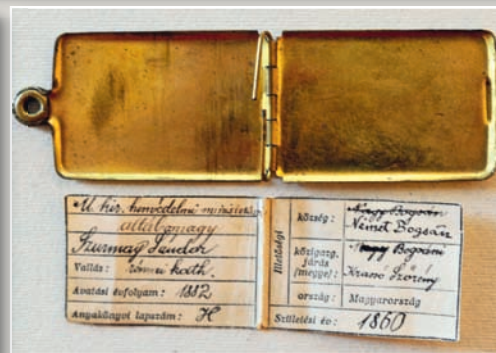 M. kir. honvédelmi miniszter
altábornagy
Szurmay Sándor
Vallás: római kath.
Avatási évfolyam: 1882
Anyakönyvi lapszám: H
Illetőségi
község: Nagy Bogsán
Német Bogsán
közigazg. járás (megye): Nagy Bogsáni
Krassó Szörény
ország: Magyarország
Születési év: 1860